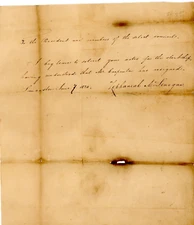 To the President and members of the select council.
I beg leave to solicit your votes for the clerkship,
having understood that Mr Carpenter has resigned.
Lancaster June 7